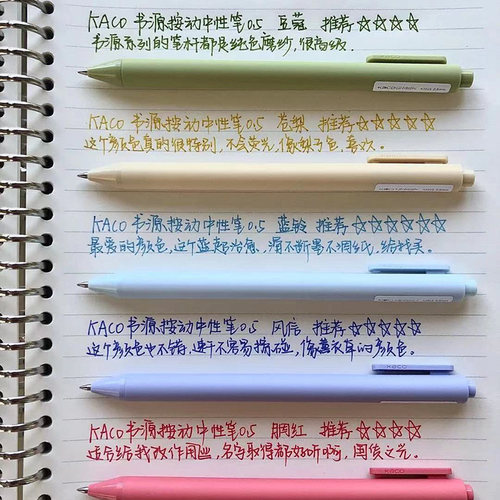 KACO 书源按动中性笔0.5 豆蔻 推荐☆☆☆☆
书源系列的笔杆都是纯色磨砂，很高级．
KACO
KACO 书源按动中性笔0.5 苍梨 推荐☆☆☆☆☆
这个颜色真的很特别，不会荧光，像梨子色，喜欢。
KACO 书源按动中性笔0.5 蓝铃 推荐☆☆☆☆☆☆
最爱的颜色，这个蓝超治愈，滑不断墨不洇纸，给我买。
KACO 书源按动中性笔0.5 风信 推荐☆☆☆☆☆
这个颜色也不错，速干不容易 像薰衣草的颜色。
KACO
KACO 书源按动中性笔0.5 胭红 推荐☆☆☆☆
适合给我改作用, 名字取得都好听啊，国货之光。
KACO